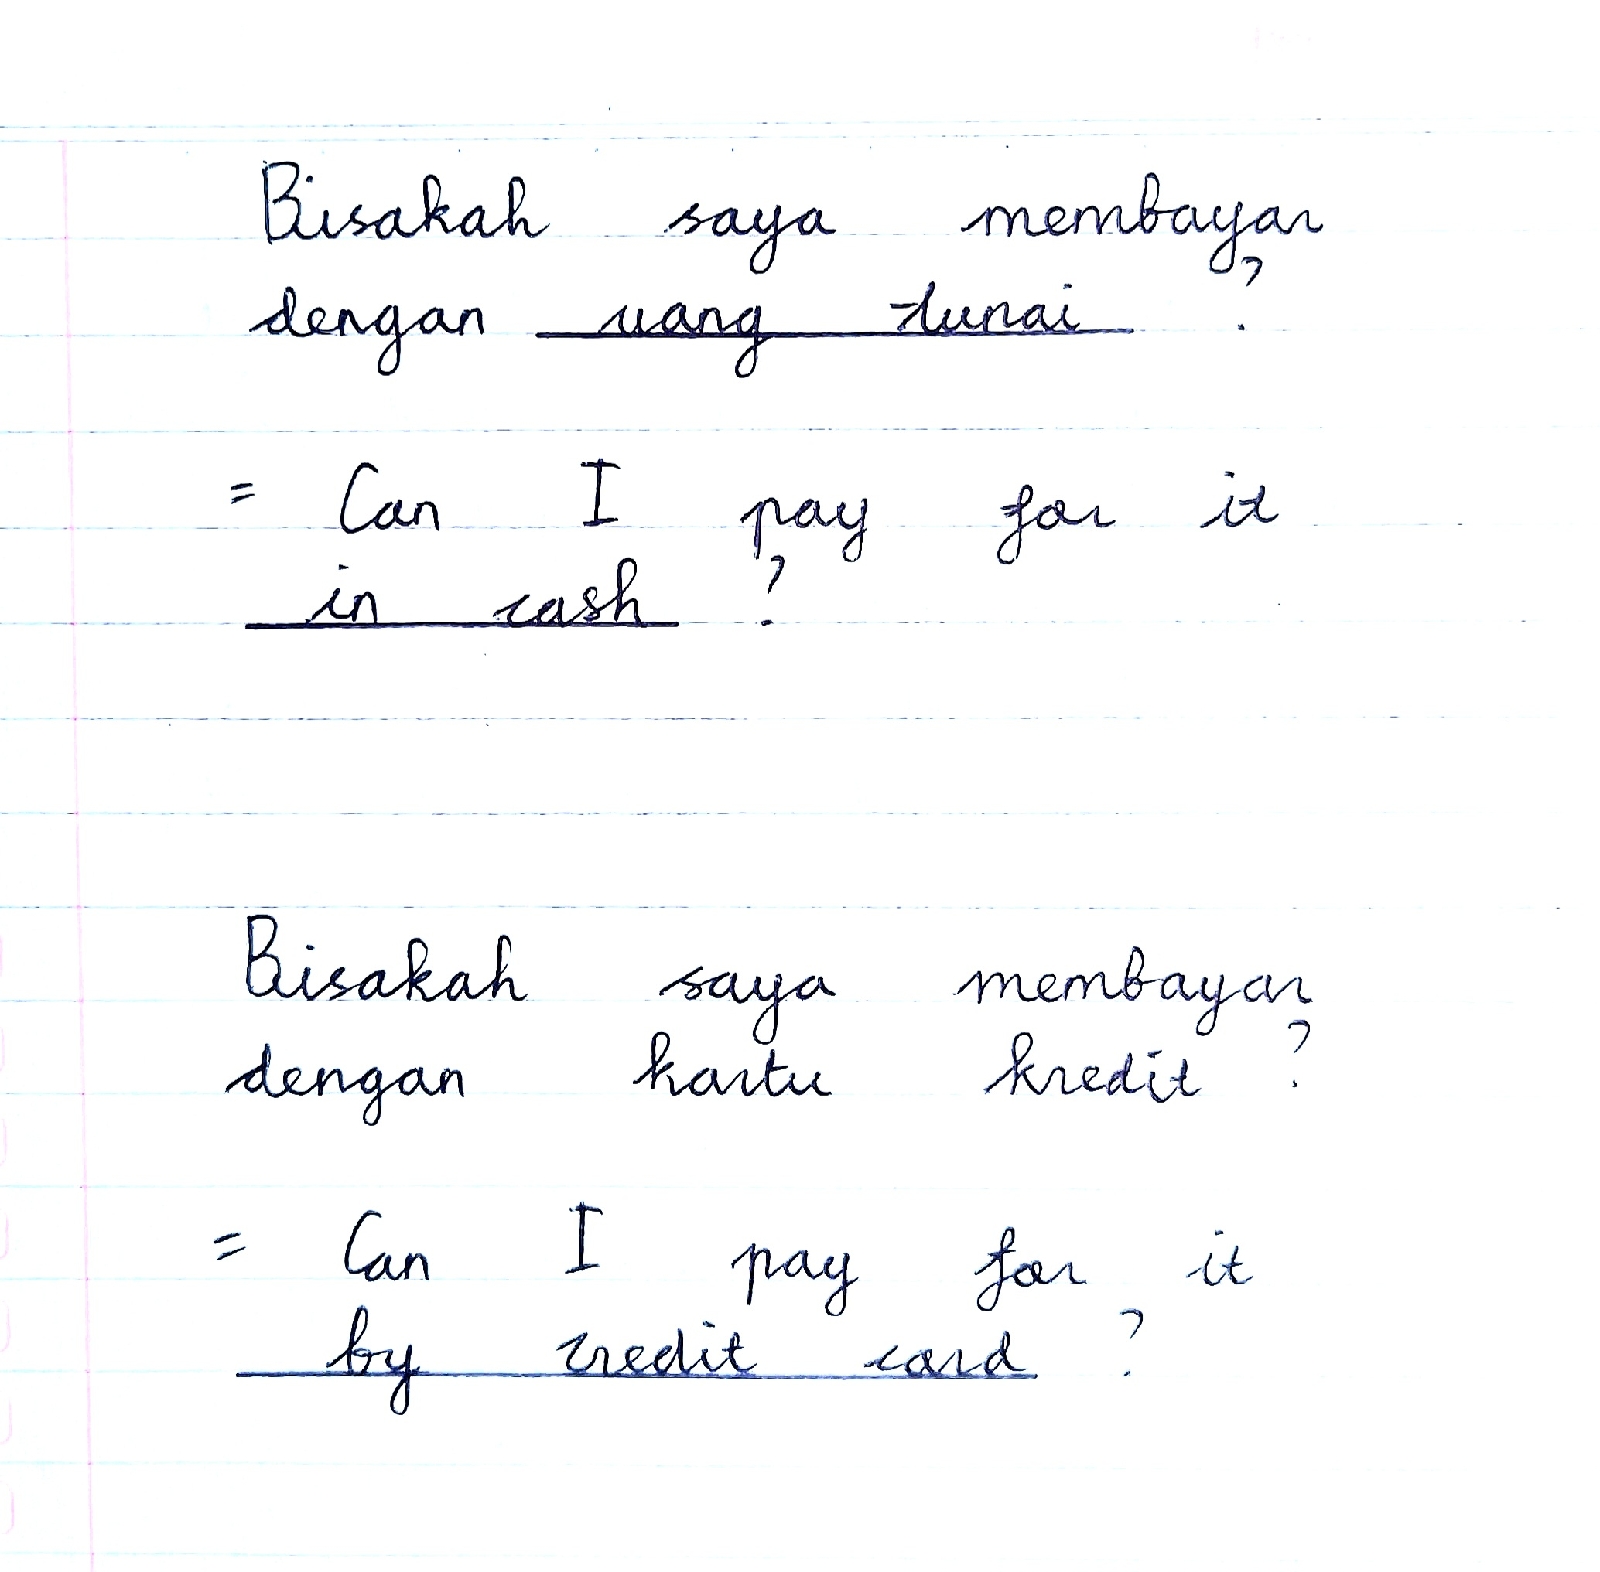 Bisakah saya membayar
dengan uang tunai ?
= Can I pay for it
in cash ?
Bisakah saya membayar
dengan kartu kredit ?
= Can I pay for it
by credit card ?